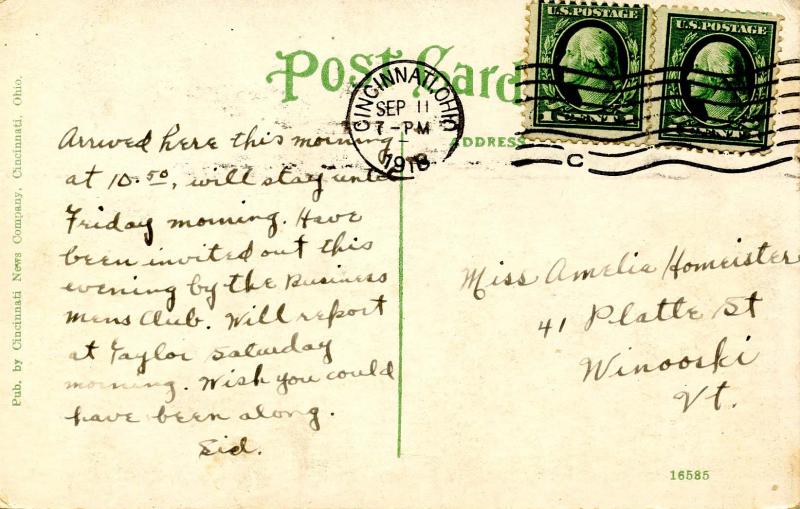 Post Card
U.S. POSTAGE
U.S. POSTAGE
CINCINNATI, OHIO
SEP 11
7-PM
1918
C
ADDRESS
Arrived here this morning
at 10.50, will stay until
Friday morning. Have
been invited out this
evening by the Business
Mens Club. Will report
at Taylor Saturday
morning. Wish you could
have been along.
Sid.
Miss Amelia Homeister
41 Platte St
Winooski
Vt.
16585
Pub. by Cincinnati News Company, Cincinnati, Ohio.